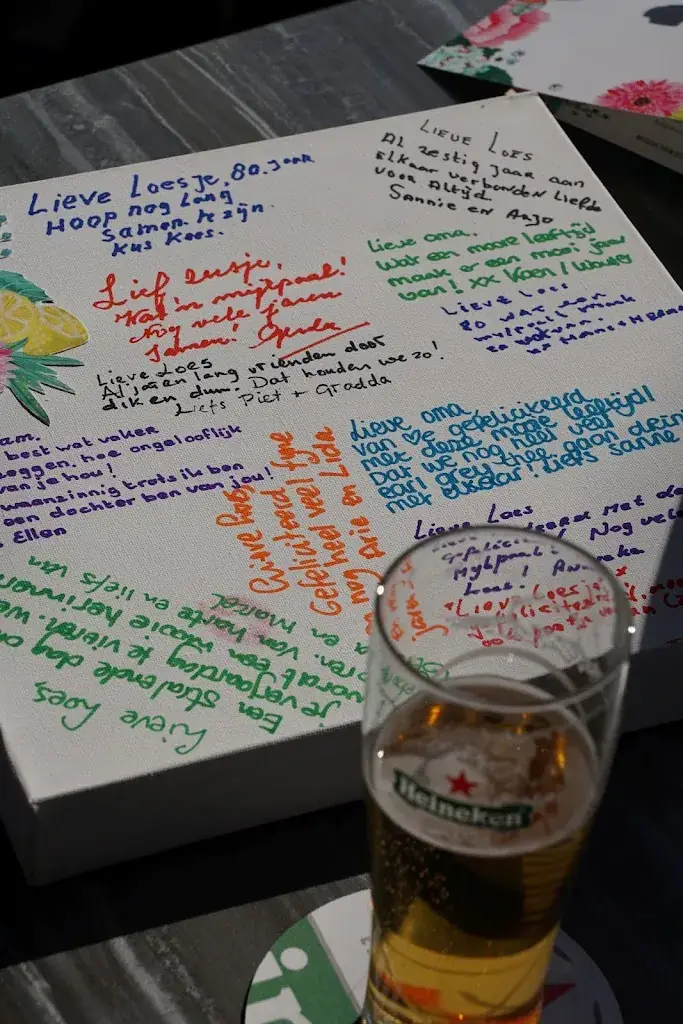 Lieve Loesje, 80 jaar
Hoop nog lang
Samen te zijn.
Kus Kees.
LIEVE LOES
Al zestig jaar aan
Elkaar verbonden Liefde
voor Altijd
Sannie en Anjo
Lieve oma.
Wat een mooie leeftijd
maak er een mooi jaar
van! xx Koen / Wouter
Lief zusje,
Wat 'n mijlpaal!
Nog vele jaren
samen! Gerda
LIEVE LOES
80 WAT een
mylpaal
Lieve Loes
Al jaren lang vrienden door
dik en dun. Dat houden we zo!
Liefs Piet + Gradda
am.
best wat vaker
zeggen, hoe ongelooflijk
van je hou!
waanzinnig trots ik ben
een dochter ben van jou!
Ellen
Lieve oma
van ♥ gefeliciteerd
met deze mooie leeftijd!
Dat we nog heel veel
earl grey thee gaan drinken
met elkaar! Liefs Sanne
Lieve Loes,
Gefeliciteerd
heel veel fijne
Arie en Lida
Lieve Loes
met de
Mylpaal! Nog vele
Loes!
Lieve Loesje
Lieve Loes,
Een stralende dag om
je verjaardag te vieren.
wordt een mooie herinnering
Van harte en liefs van
en Marcel
Heineken